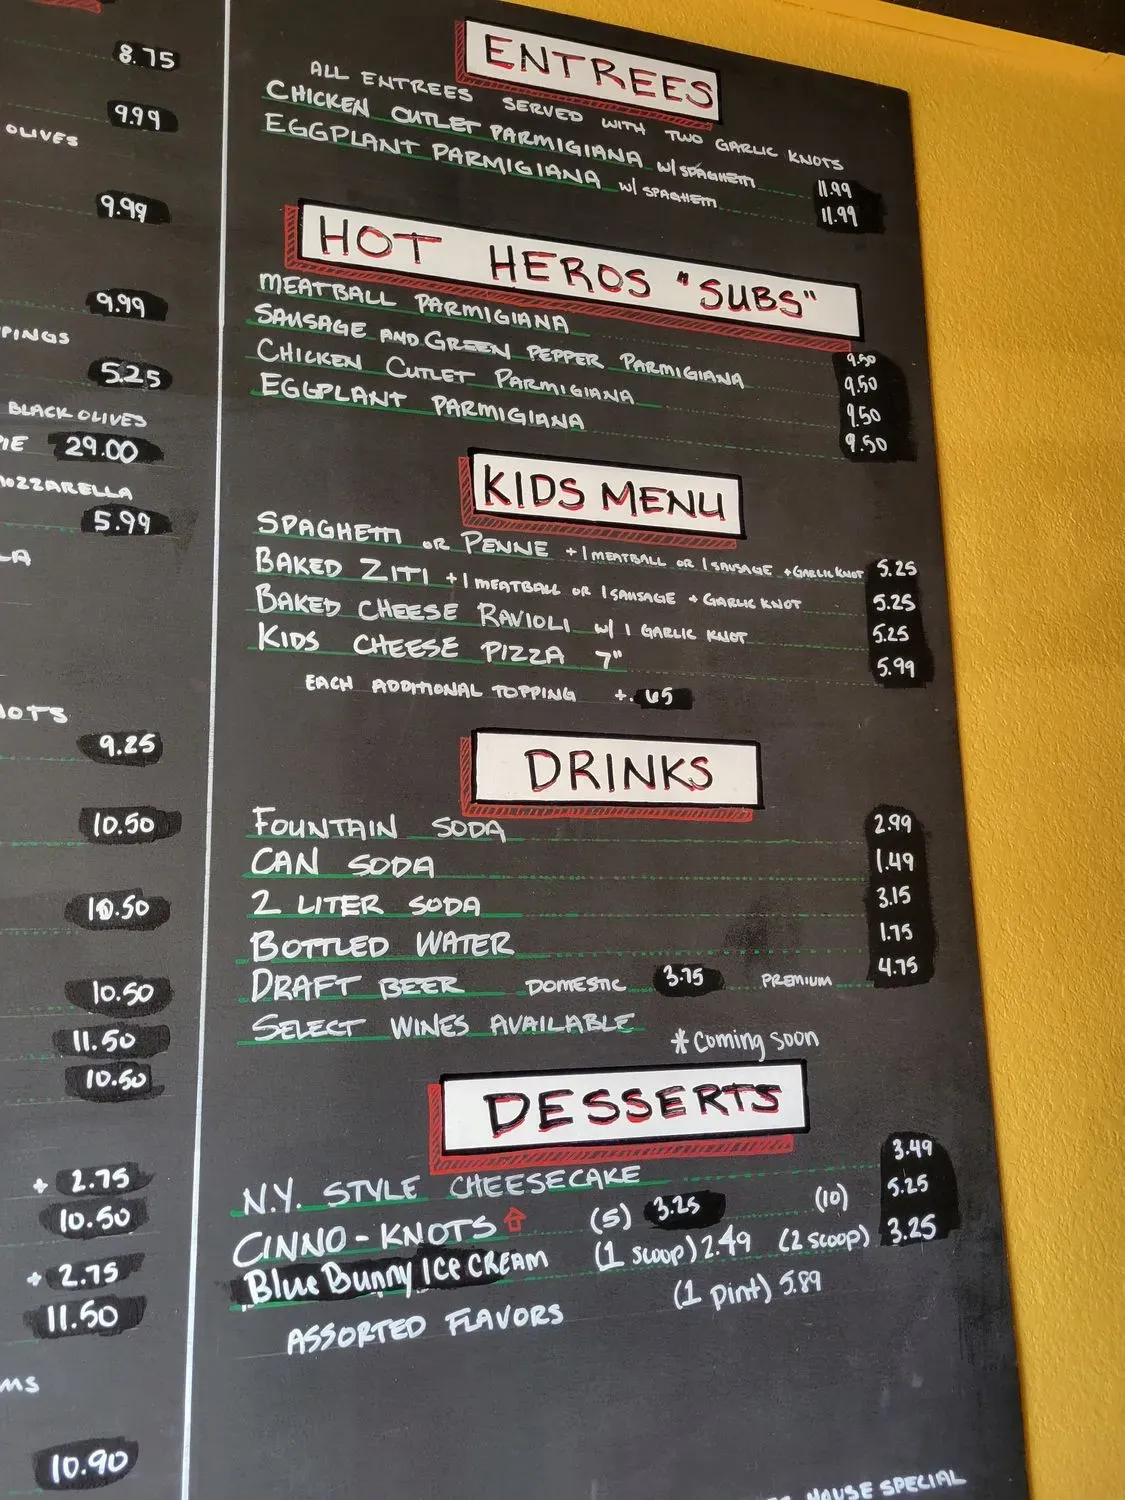 8.75
9.99
OLIVES
9.99
9.99
PINGS
5.25
BLACK OLIVES
29.00
OZZARELLA
5.99
LA
OTS
9.25
10.50
10.50
10.50
11.50
10.50
+ 2.75
10.50
+ 2.75
11.50
MS
10.90
ENTREES
ALL ENTREES SERVED WITH TWO GARLIC KNOTS
CHICKEN CUTLET PARMIGIANA w/ SPAGHETTI 11.99
EGGPLANT PARMIGIANA w/ SPAGHETTI 11.99
HOT HEROS "SUBS"
MEATBALL PARMIGIANA 9.50
SAUSAGE AND GREEN PEPPER PARMIGIANA 9.50
CHICKEN CUTLET PARMIGIANA 9.50
EGGPLANT PARMIGIANA 9.50
KIDS MENU
SPAGHETTI OR PENNE + 1 MEATBALL OR 1 SAUSAGE + GARLIC KNOT 5.25
BAKED ZITI + 1 MEATBALL OR 1 SAUSAGE + GARLIC KNOT 5.25
BAKED CHEESE RAVIOLI w/ 1 GARLIC KNOT 5.25
KIDS CHEESE PIZZA 7" 5.99
EACH ADDITIONAL TOPPING +. 65
DRINKS
FOUNTAIN SODA 2.99
CAN SODA 1.49
2 LITER SODA 3.15
BOTTLED WATER 1.75
DRAFT BEER DOMESTIC 3.75 PREMIUM 4.75
SELECT WINES AVAILABLE
* Coming soon
DESSERTS
N.Y. STYLE CHEESECAKE 3.49
CINNO-KNOTS (5) 3.25 (10) 5.25
Blue Bunny ICE CREAM (1 scoop) 2.49 (2 scoop) 3.25
(1 pint) 5.89
ASSORTED FLAVORS
HOUSE SPECIAL